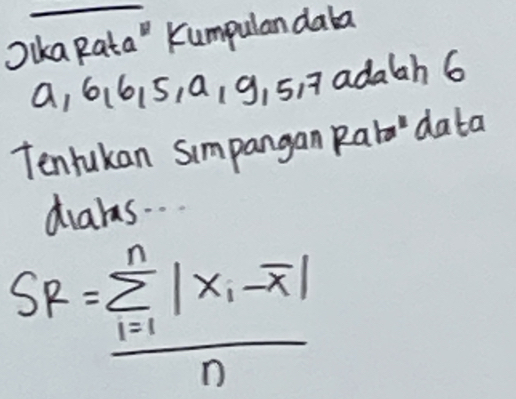 Jika Rata" Kumpulan data
a, 6, 6, 5, a, 9, 5, 7 adalah 6
Tentukan Simpangan Rata" data
diatas...
SR = \frac{\sum_{i=1}^{n} |x_i - \overline{x}|}{n}